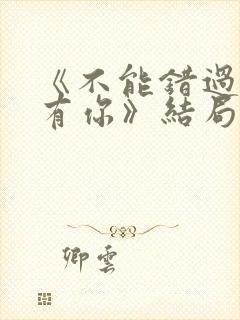 《不能错過
有你》結局
卿雲